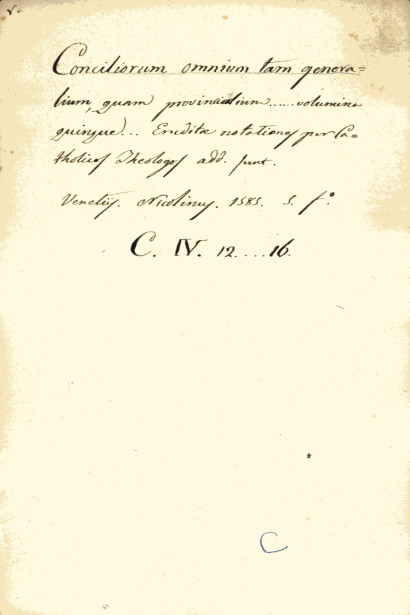 Conciliorum omnium tam genera=
lium, quam provincialium......volumina
quinque... Eruditæ notationes per Ca=
tholicos Theologos add. sunt.
Venetijs. Nicolinus. 1585. 5. fº.
C. IV. 12....16.
C